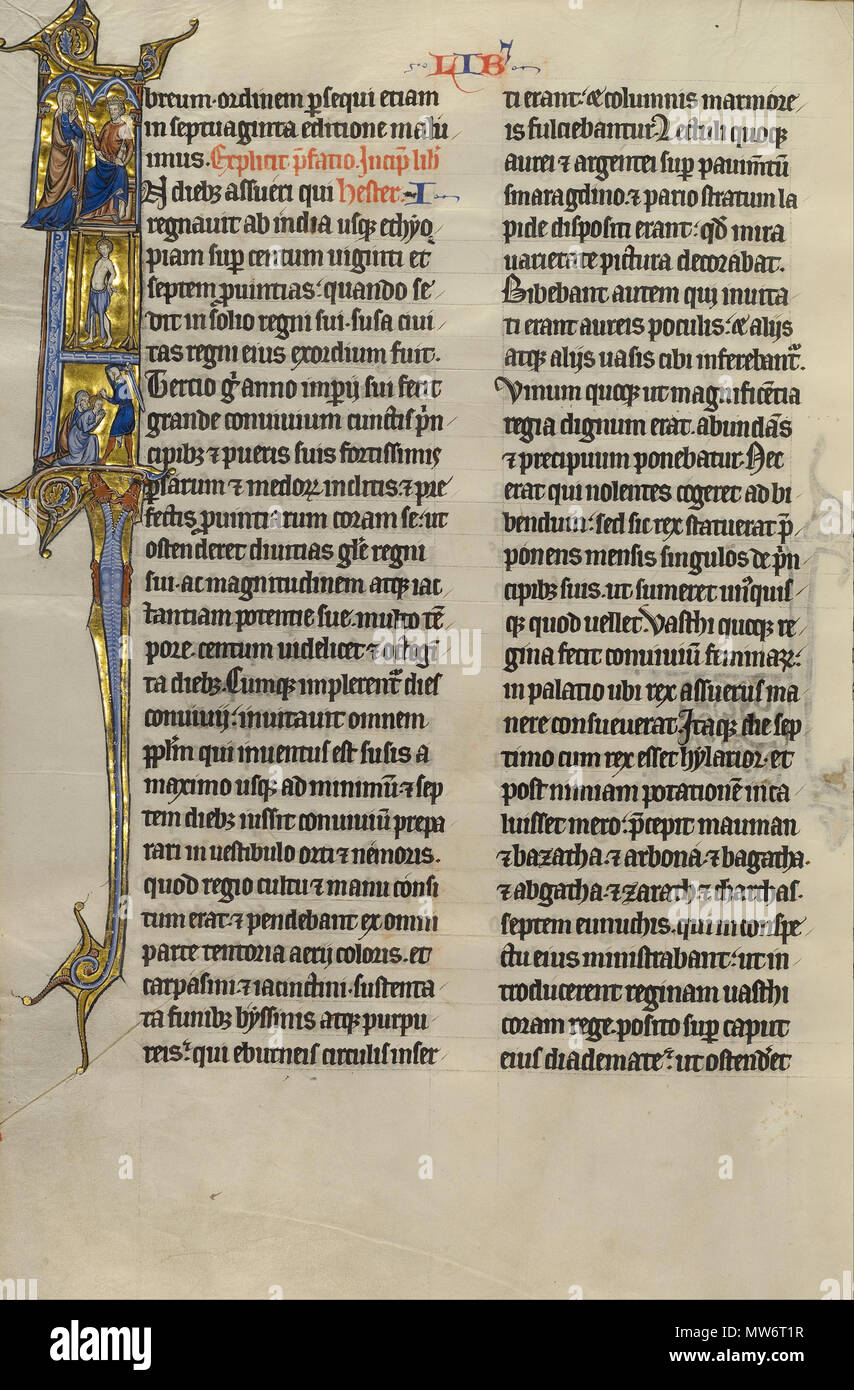 LIB
breum. ordinem p̄sequi etiam
in septuaginta editione malu
imus. Explicit p̄fatio. Incip̄ lib̄
N dieb; assueri qui Hester. I
regnauit ab india usq; ethyo
piam sup̄ centum uiginti et
septem ꝓuintias: quando se
dit in solio regni sui. susa ciui
tas regni eius exordium fuit.
Tertio g̃ anno imp̄ij sui fecit
grande conuiuium cunctis p̄n
cipib; ⁊ pueris suis fortissimis
p̄sarum ⁊ medoꝝ inclitis. ⁊ pre
fectis ꝓuintiarum coram se: ut
ostenderet diuitias gl̄e regni
sui. ac magnitudinem atq; iac
tantiam potentie sue. multo tē
pore. centum uidelicet ⁊ octogī
ta dieb;. Cumq; implerent̃ dies
conuiuij: inuitauit omnem
ppl̄m qui inuentus est susis a
maximo usq; ad minimū: ⁊ sep
tem dieb; iussit conuiuiū prepa
rari in uestibulo orti ⁊ nemoris.
quod regio cultu ⁊ manu consi
tum erat. ⁊ pendebant ex omni
parte tentoria aerij coloris. et
carpasini ⁊ iacinctini. sustenta
ta funib; byssinis atq; purpu
reis: qui eburneis circulis inser
ti erant: & columnis marmore
is fulciebantur. Lectuli quoq;
aurei ⁊ argentei sup̄ pauim̄tū
smaragdino. ⁊ pario stratum la
pide dispositi erant: qd̄ mira
uarietate pictura decorabat.
Bibebant autem qui inuita
ti erant aureis poculis: & alijs
atq; alijs uasis cibi inferebant̃.
Vinum quoq; ut magnificētia
regia dignum erat. abundās
⁊ precipuum ponebatur. Nec
erat qui nolentes cogeret ad bi
bendum: sed sic rex statuerat p̄
ponens mensis singulos de p̄n
cipib; suis. ut sumeret un̄quis
q; quod uellet. Vasthi quoq; re
gina fecit conuiuiū feminaꝝ:
in palatio ubi rex assuerus ma
nere consueuerat. Itaq; die sep
timo cum rex esset hylarior. et
post nimiam potationē inca
luisset mero: p̄cepit mauman
⁊ bazatha. ⁊ arbona. ⁊ bagatha.
⁊ abgatha. ⁊ zarath. ⁊ charchas.
septem eunuchis. qui in conspe
ctu eius ministrabant: ut in
troducerent reginam uasthi
coram rege. posito sup̄ caput
eius diademate: ut ostend̄et
alamy
alamy
Image ID: MW6T1R
www.alamy.com